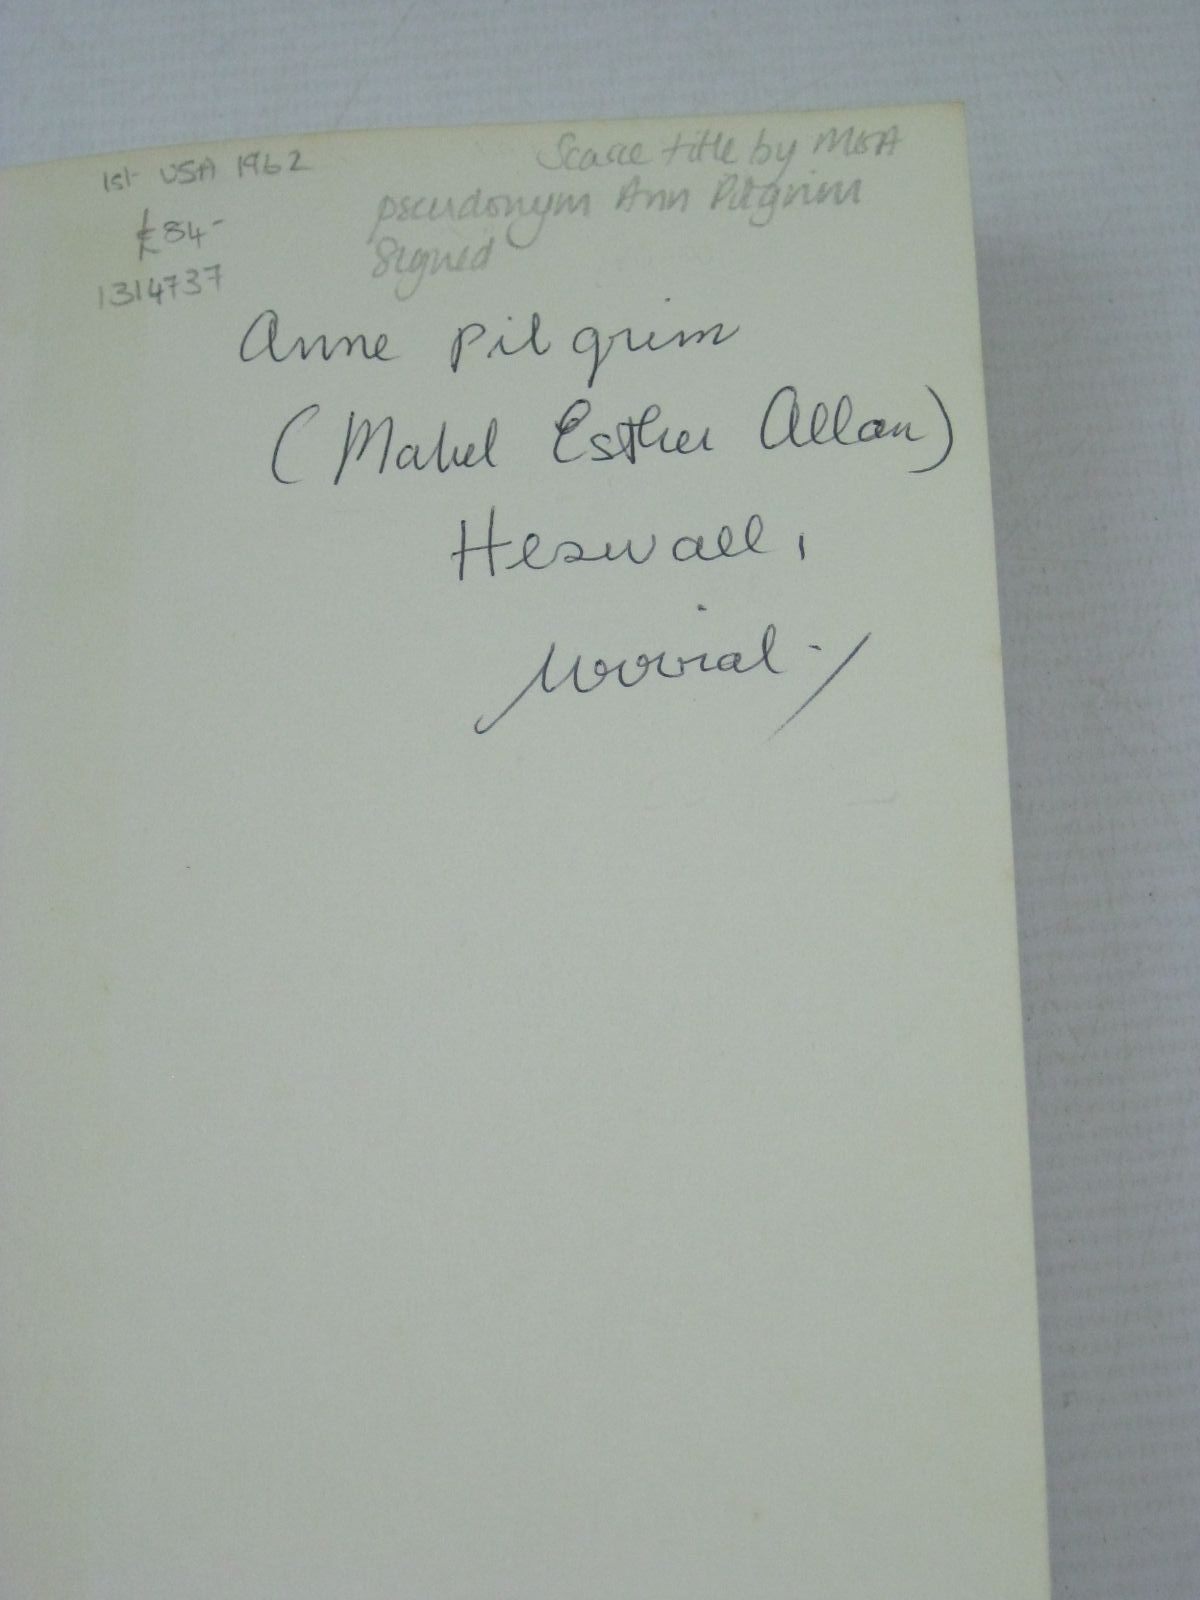 1st USA 1962
£84-
1314737
Scarce title by MEA
pseudonym Ann Pilgrim
Signed
Anne Pilgrim
(Mabel Esther Allan)
Heswall,
Wirral.